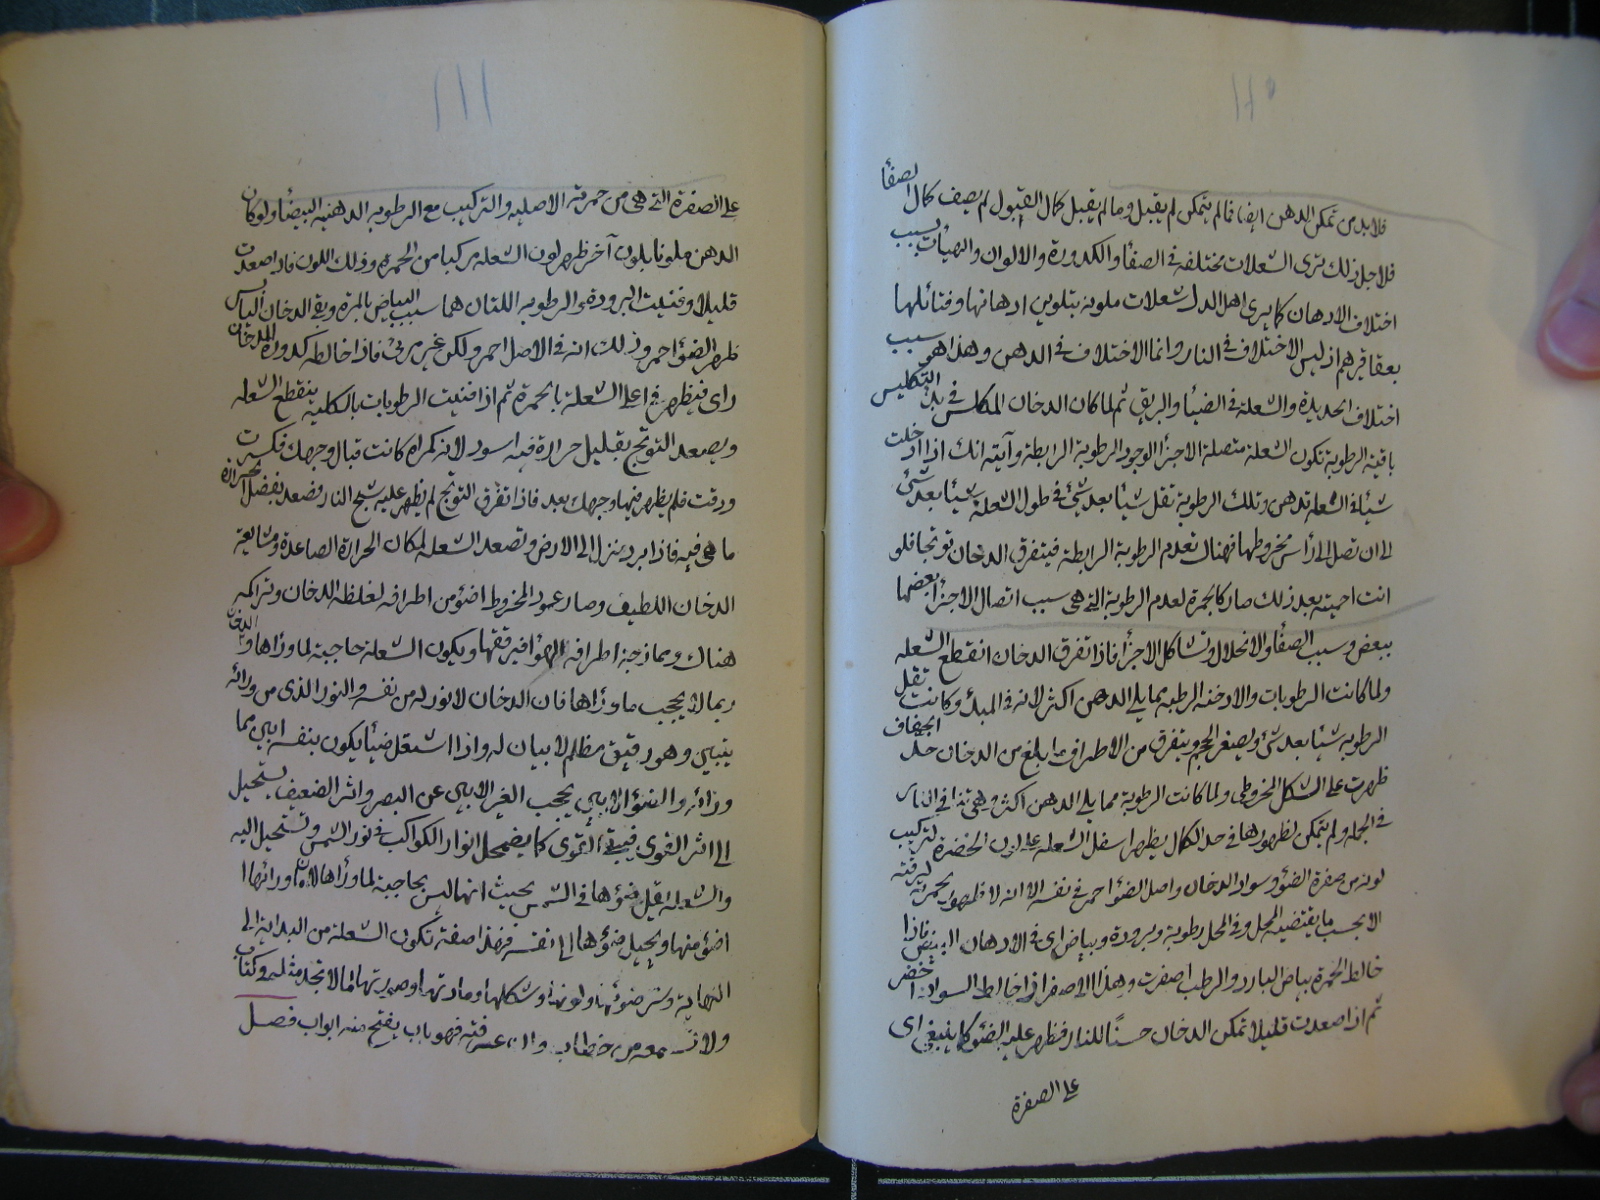 ١١٠
فلابد من تمكن الدهن ايضا فما لم يتمكن لم يقبل وما لم يقبل كمال القبول لم يصف كمال الصفا
فلاجل ذلك ترى الشعلات مختلفة في الصفا والكدورة والالوان والهيات بسبب
اختلاف الادهان كما يرى اهل الدل شعلات ملونة بتلوين ادهانها وفتائلها
بعقاقيرهم اذ ليس الاختلاف في النار وانما الاختلاف في الدهن وهذا هو سبب
اختلاف الحديدة والشعلة في الضيا والبريق ثم لما كان الدخان المكلس في بدن التكليس
باقية الرطوبة تكون الشعلة متصلة الاجزا لوجود الرطوبة الرابطة وآيته انك اذا ادخلت
شيئا في الشعلة تدهن وتلك الرطوبة تقل شيئا بعد شئ في طول الشعلة شيئا بعد شئ
الى ان تصل الى رأس مخروطها فهناك تعدم الرطوبة الرابطة فيتفرق الدخان توتجا فلو
انت احميته بعد ذلك صار كالجمرة لعدم الرطوبة التي هي سبب اتصال الاجزا بعضها
ببعض وسبب الصفا والانحلال وتشاكل الاجزا فاذا تفرق الدخان انقطع الشعلة
ولما كانت الرطوبات والادخنة الرطبة مما يلي الدهن اكثر لانه في المبدء وكانت تقل
الرطوبة شيئا بعد شئ ويصغر الحجم ويتفرق من الاطراف ما بلغ من الدخان حد الجفاف
ظهرت على الشكل المخروطي ولما كانت الرطوبة مما يلي الدهن اكثر وهي تنافي النار
في الجملة ولم يتمكن لظهورها في حد الكمال يظهر اسفل الشعلة على لون الخضرة لتركيب
لونه من صفرة الضوء وسواد الدخان واصل الضوء احمر في نفسه الا انه لا ظهور لحمرته لرقته
الا بحسب ما يقتضيه المحل وفي المحل رطوبة وبرودة وبياض اى في الادهان البيض فاذا
خالط الحمرة بياض البارد والرطب اصفرت وهذا الاصفر اذا خالط السواد اخضر
ثم اذا صعدت قليلا تمكن الدخان حسنا للنار فظهر عليه الضوء كما ينبغي اى
على الصفرة
١١١
على الصفرة التي هي من حمرته الاصلية والتركيب مع الرطوبة الدهنية البيضا ولو كان
الدهن ملونا بلون آخر ظهر لون الشعلة مركبا من الحمرة وذلك اللون فاذا صعدت
قليلا وفنيت البرودة والرطوبة اللتان هما سبب البياض بالمرة وبقي الدخان اليابس
ظهر الضوء احمر وذلك انه في الاصل احمر ولكن غير مرئي فاذا خالطه كدورة الدخان
راى فيظهر في اعلى الشعلة بالحمرة ثم اذا فنيت الرطوبات بالكلية ينقطع الشعلة
ويصعد التوتج بقليل حرارة فيه اسود لانه كمرآة كانت قبال وجهك فكسرت
ودقت فلم يظهر فيها وجهك بعد فاذا تفرق التوتج لم يظهر عليه شبح النار فصعد بفضل الحرارة
ما هي فيه فاذا برد ينزل الى الارض وتصعد الشعلة لمكان الحرارة الصاعدة ومشايعة
الدخان اللطيف وصار عمود المخروط اضوء من اطرافه لغلظة الدخان وتراكمه
هناك وممازجة اطرافه الهواء فيرققها ويكون الشعلة حاجبة لما وراها والدخان
ربما لا يحجب ما وراها فان الدخان لا نور له من نفسه والنور الذى من ورائه
ينبئ وهو رقيق مظلم لا بيان له واذا اشتعل ضيئا يكون بنفسه ابين مما
ورائه والضوء الابين يحجب الغير الابين عن البصر واثر الضعيف يستحيل
الى اثر القوى فيتقوى كما يضمحل انوار الكواكب في نور الشمس وتستحيل اليه
والشعلة يقل ضوءها في الشمس بحيث انها ليس بحاجبة لما وراها لان ما ورائها
اضوء منها ويحيل ضوءها الى نفسه فهذا صفة تكون الشعلة من البداية الى
النهاية وسر ضوئها ولونها وشكلها ومادتها وصورتها مما لا تجد مثله في كتاب
ولا تسمعه من خطاب وان عرفته فهو باب يفتح منه ابواب فصل